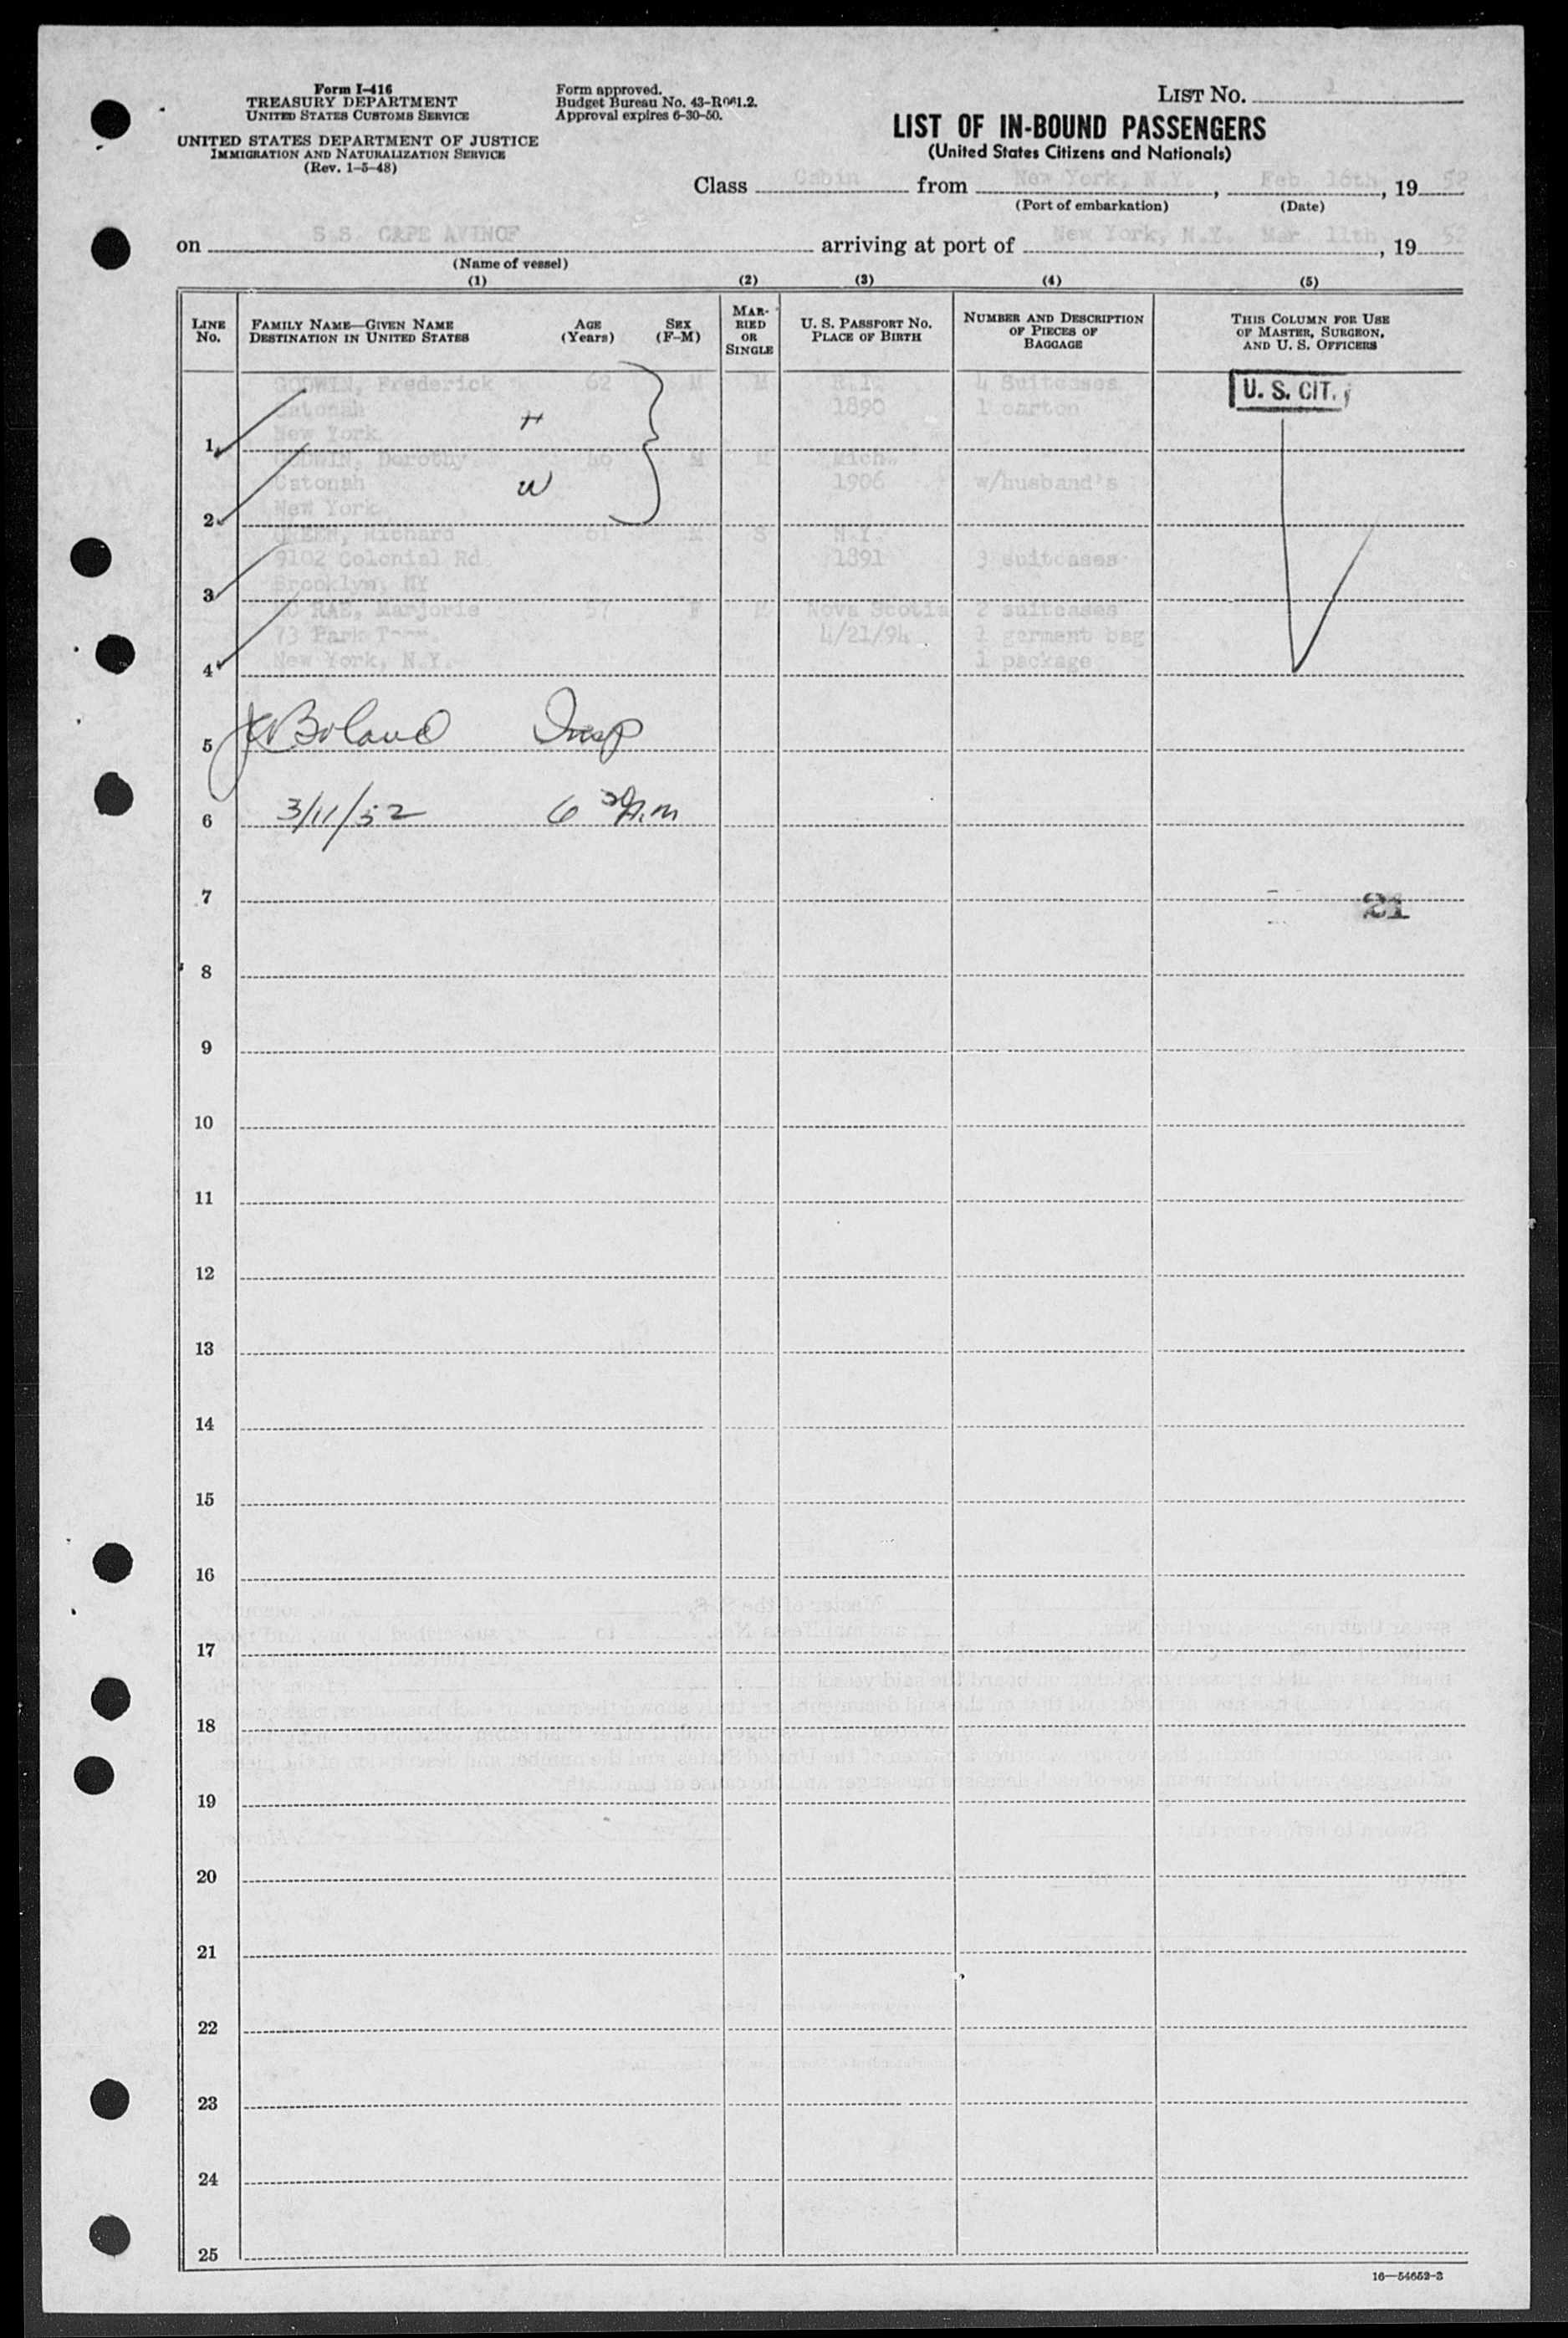 Form I-416
TREASURY DEPARTMENT
UNITED STATES CUSTOMS SERVICE
UNITED STATES DEPARTMENT OF JUSTICE
IMMIGRATION AND NATURALIZATION SERVICE
(Rev. 1-5-48)
Form approved.
Budget Bureau No. 43-R061.2.
Approval expires 6-30-50.
LIST NO.
LIST OF IN-BOUND PASSENGERS
(United States Citizens and Nationals)
Class Cabin from New York, N.Y., Feb 16th, 1952
(Port of embarkation) (Date)
on S.S. CAPE AVINOF arriving at port of New York, N.Y. Mar. 11th, 1952
(Name of vessel)
(1) (2) (3) (4) (5)
LINE NO.
FAMILY NAME—GIVEN NAME
DESTINATION IN UNITED STATES
AGE (Years)
SEX (F-M)
MARRIED OR SINGLE
U. S. PASSPORT NO.
PLACE OF BIRTH
NUMBER AND DESCRIPTION OF PIECES OF BAGGAGE
THIS COLUMN FOR USE OF MASTER, SURGEON, AND U. S. OFFICERS
GODWIN, Frederick 62 M M R.I. 4 Suitcases U. S. CIT.
Catonah H 1890 1 carton
1 New York
GODWIN, Dorothy 46 M M Mich.
Catonah W 1906 w/husband's
2 New York
GREEN, Richard 61 M S N.Y.
9102 Colonial Rd. 1891 3 suitcases
3 Brooklyn, NY
RAE, Marjorie 57 F M Nova Scotia 2 suitcases
73 Park 4/21/94 1 garment bag
4 New York, N.Y. 1 package
5 Boland Insp
6 3/11/52 6 30 A.m
7 21
8
9
10
11
12
13
14
15
16
17
18
19
20
21
22
23
24
25
16—54652-3